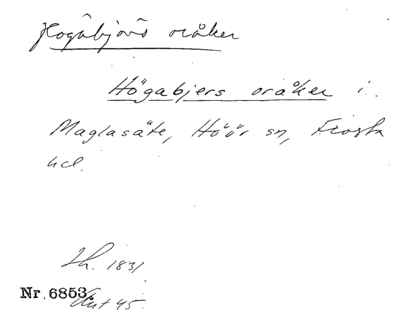 Hogåbjärs oråker
Högabjers oråker i
Maglasäte, Höör sn, Frosta
hd.
Lh. 1831
Nr. 6853. Akt 45.